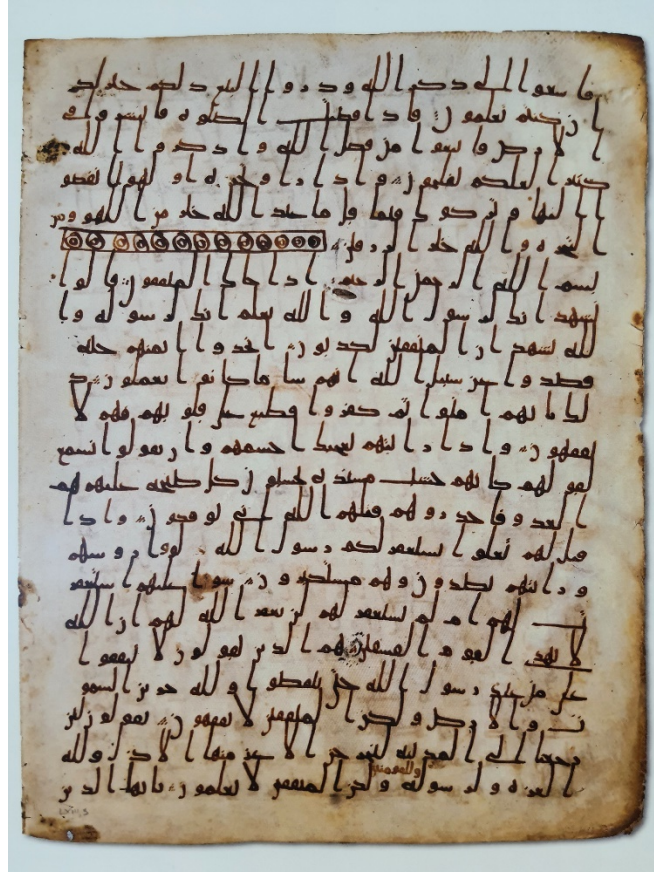 فاسعوا الى ذكر الله وذروا البيع ذلكم خير لكم ا
ن كنتم تعلمون فاذا قضيت الصلوة فانتشروا في
الارض وابتغوا من فضل الله واذكروا الله
كثيرا لعلكم تفلحون واذا راوا تجرة او لهوا انفضو
ا اليها وتركوك قيما قل ما عند الله خير من اللهو ومن
التجرة والله خير الرزقين
بسم الله الرحمن الرحيم اذا جاك المنفقون قالوا
نشهد انك لرسول الله والله يعلم انك لرسوله وا
لله يشهد ان المنفقين لكذبون اتخذوا ايمنهم جنة
فصدوا عن سبيل الله انهم سا ما كانوا يعملون ذ
لك بانهم امنوا ثم كفروا فطبع على قلوبهم فهم لا
يفقهون واذا رايتهم تعجبك اجسمهم وان يقولوا تسمع
لقولهم كانهم خشب مسندة يحسبون كل صيحة عليهم هم
العدو فاحذرهم قتلهم الله انى يوفكون واذا
قيل لهم تعالوا يستغفر لكم رسول الله لووا روسهم
ورايتهم يصدون وهم مستكبرون سوا عليهم استغفر
ت لهم ام لم تستغفر لهم لن يغفر الله لهم ان الله
لا يهدي القوم الفسقين هم الذين يقولون لا تنفقوا
على من عند رسول الله حتى ينفضوا ولله خزين السمو
ت والارض ولكن المنفقين لا يفقهون يقولون لين
رجعنا الى المدينة ليخرجن الاعز منها الاذل ولله
وللمومنين
العزة ولرسوله ولكن المنفقين لا يعلمون يايها الذين